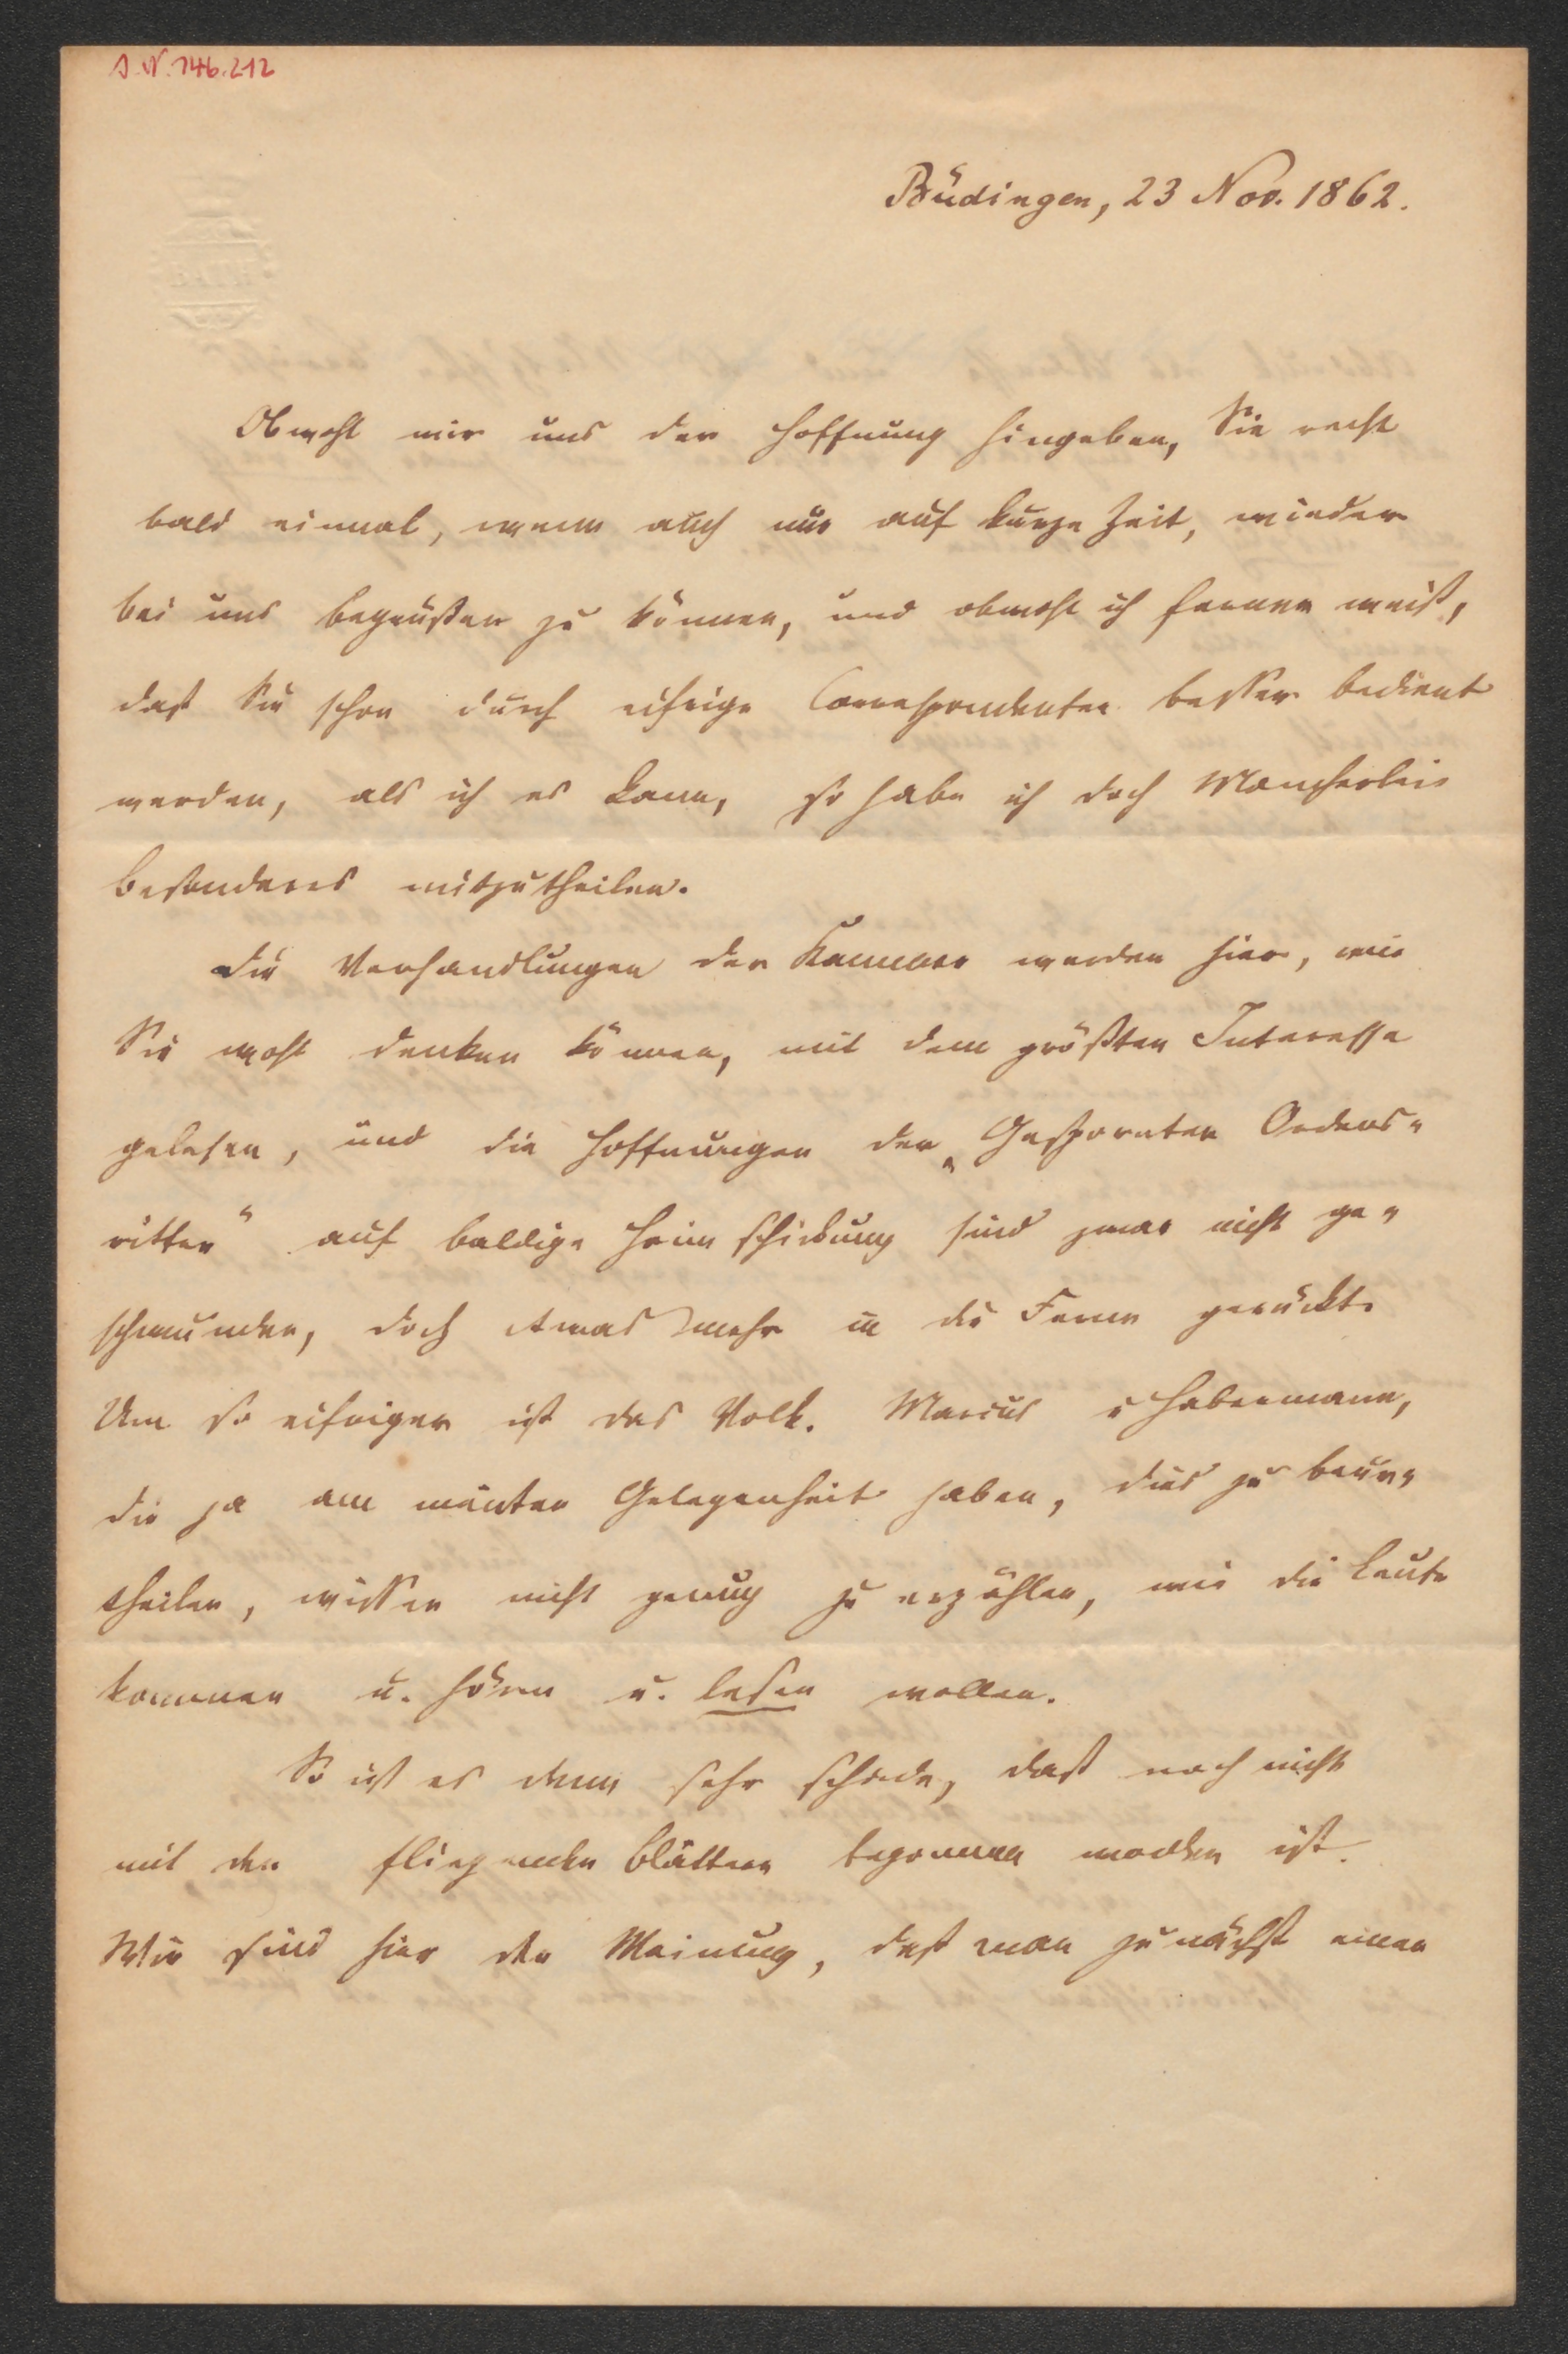 S. N. 146.212
Büdingen, 23 Nov. 1862.
Obwohl wir uns der Hoffnung hingeben, Sie recht
bald einmal, wenn auch nur auf kurze Zeit, wieder
bei uns begrüßen zu können, und obwohl ich ferner weiß,
daß Sie schon durch eifrige Correspondenten besser bedient
werden, als ich es kann, so habe ich doch Mancherlei
besonderes mitzutheilen.
Die Verhandlungen der Kammer werden hier, wie
Sie wohl denken können, mit dem größten Interesse
gelesen, und die Hoffnungen der „Gespornten Ordens-
ritter“ auf baldige Heimschickung sind zwar nicht ge-
schwunden, doch etwas mehr in die Ferne gerückt.
Um so eifriger ist das Volk. Marcus u Habermann,
die ja am meisten Gelegenheit haben, dies zu beur-
theilen, wissen nicht genug zu erzählen, wie die Leute
kommen u. hören u. lesen wollen.
So ist es denn sehr schade, daß noch nicht
mit den fliegenden Blättern begonnen worden ist.
Wir sind hier der Meinung, daß man zunächst einen